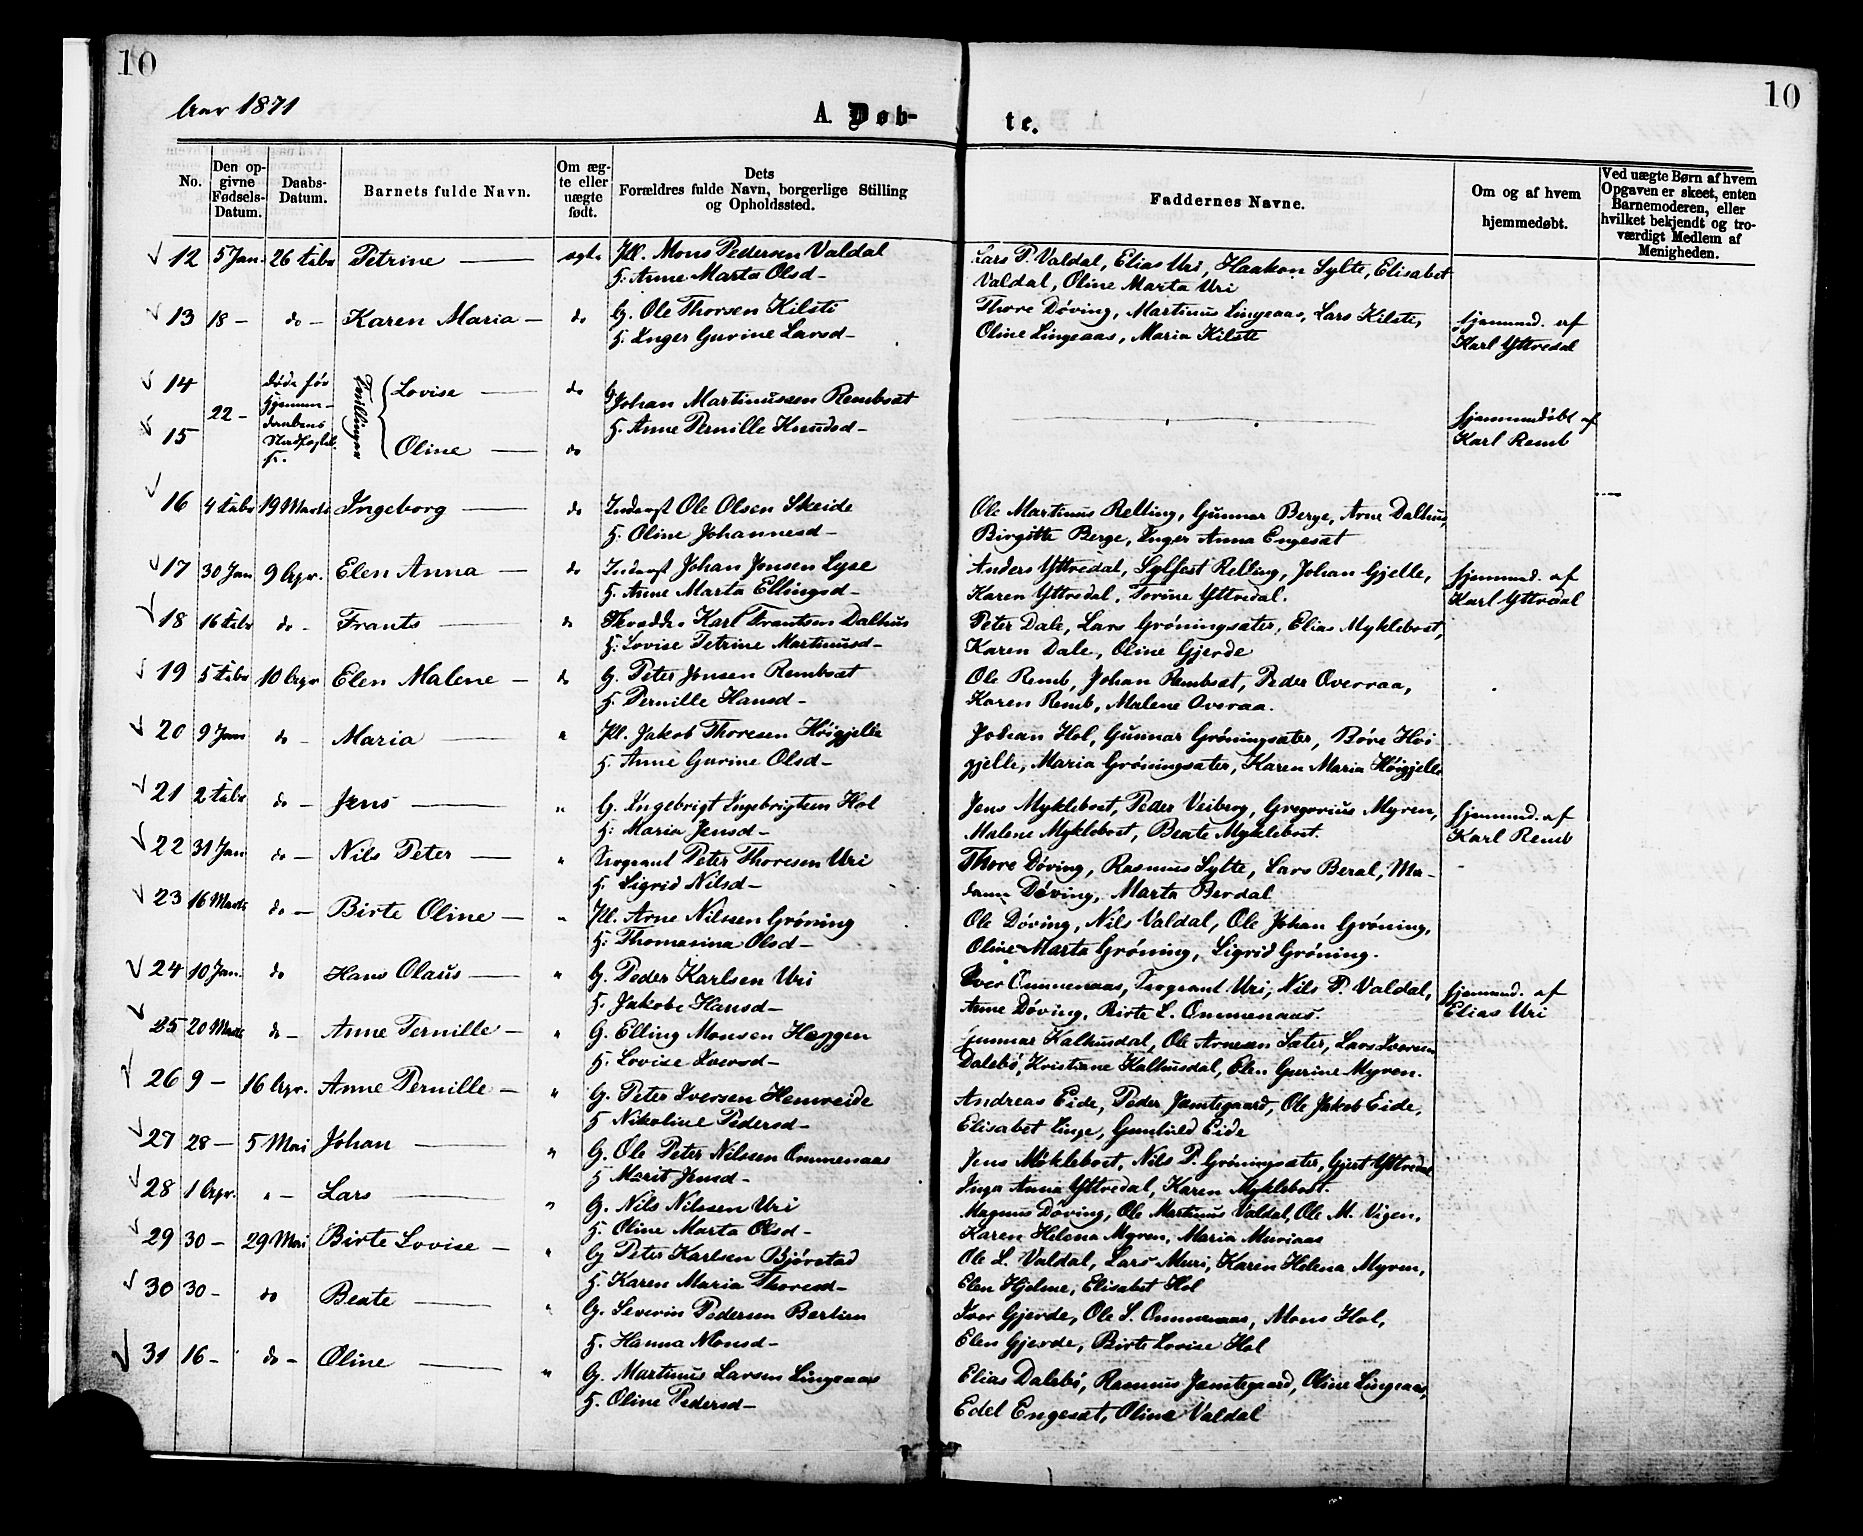 10
10
Aar 1871
A. Døb-
te.
No.
Den op-
givne
Fødsels-
Datum.
Daabs-
Datum.
Barnets fulde Navn.
Om æg-
te eller
uægte
født.
Dets
Forældres fulde Navn, borgerlige Stilling
og Opholdssted.
Faddernes Navne.
Om og af hvem
hjemmedøbt.
Ved uægte Børn af hvem
Opgaven er skeet, enten
Barnemoderen, eller
hvilket bekjendt og tro-
værdigt Medlem af
Menigheden.
12 5 Jan. 26 Febr Petrine — ægte Mons Pedersen Valdal Lars P. Valdal, Elias Uri, Haakon Sylte, Elisabet
H. Anne Marta Olsd- Valdal, Oline Marta Uri
13 18 - do - Karen Maria - do G. Ole Thorsen Kilsti Thore Døving, Martinus Lingeaas, Lars Kilste, hjemmed. af
H. Inger Gurine Larsd- Oline Lingeaas, Maria Kilste Karl Yttredal
14 22 - døde før Tvillinger Lovise — do G. Johan Martinussen Rembsæt hjemmedøbt af
15 Oline — do H. Anne Pernille Knudsd- Karl Remb
16 4 Febr 19 Marts Ingeborg — do Inderst Ole Olsen Skeide Ole Martinus Relling, Gunnar Berge, Arne Dalhus,
H. Oline Johannesd- Birgitte Berge, Inger Anna Engesæt
17 30 Jan 9 Apr. Elen Anna - do Inderst Johan Jensen Lyse Anders Yttredal, Sylfest Relling, Johan Gjelle, hjemmed. af
H. Anne Marta Ellingsd- Karen Yttredal, Torine Yttredal. Karl Yttredal
18 16 Febr do - Frants — do Karl Frantsen Dalhus Peter Dale, Lars Grøningsæter, Elias Myklebost,
H. Lovise Petrine Martinusd- Karen Dale, Oline Gjerde
19 5 Febr 10 Apr Elen Malene - do G. Peter Jensen Rembsæt Ole Remb, Johan Rembsæt, Peder Overaa,
H. Pernille Hansd- Karen Remb, Malene Overaa.
20 9 Jan do - Maria — " Jakob Thoresen Høigjelle Johan Hol, Gunnar Grøningsæter, Børe Høi-
H. Anne Gurine Olsd- gjelle, Maria Grøningsæter, Karen Maria Høigjelle
21 2 Febr do - Jens — " G. Ingebrigt Ingebrigtsen Hol Jens Myklebost, Peder Veiberg, Gregorius Myren, hjemmed. af
H. Maria Jensd- Malene Myklebost, Beate Myklebost. Karl Remb
22 31 Jan do - Nils Peter — " Sergeant Peter Thoresen Uri Thore Døving, Rasmus Sylte, Lars Berdal, Ma-
H. Sigrid Nilsd- dame Døving, Marta Berdal
23 16 Marts do - Birte Oline - " Arne Nilssen Grøning Ole Døving, Nils Valdal, Ole Johan Grøning,
H. Thomasina Olsd- Oline Marta Grøning, Sigrid Grøning.
24 10 Jan. do Hans Olaus — " G. Peder Karlsen Uri Iver Ommenaas, Sergeant Uri, Nils P. Valdal, hjemmed. af
H. Jakobe Hansd- Anne Døving, Birte L. Ommenaas. Elias Uri
25 20 Marts do - Anne Pernille - " G. Elling Monsen Heggen Gunnar Kalhusdal, Ole Arnesen Sæter, Lars Iversen
H. Lovise Iversd- Dalsbø, Kristiane Kalhusdal, Elen Gurine Myren.
26 9 - 16 Apr. Anne Pernille - " G. Peter Iversen Hemreide Andreas Eide, Peder Jamtegaard, Ole Jakob Eide,
H. Nikoline Pedersd- Elisabet Linge, Gunhild Eide
27 28 - 5 Mai Johan — " G. Ole Peter Nilssen Ommenaas Jens Myklebost, Nils P. Grøningsæter, Gjert Yttredal
H. Marit Jensd- Inga Anna Yttredal, Karen Myklebost.
28 1 Apr. " - Lars — " G. Nils Nilssen Uri Magnus Døving, Ole Martinus Valdal, Ole M. Vigen,
H. Oline Marta Olsd- Karen Helena Myren, Maria Muriaas
29 30 - 29 Mai Birte Lovise - " G. Peter Karlsen Bjørstad Ole L. Valdal, Lars Muri, Karen Helena Myren,
H. Karen Maria Thoresd- Elen Hjelme, Elisabet Hol
30 30 - do Beate — " G. Severin Pedersen Berlien Iver Gjerde, Ole S. Ommenaas, Mons Hol,
H. Hanna Monsd- Elen Gjerde, Birte Lovise Hol
31 16 - do - Oline — " G. Martinus Larsen Lingeaas Elias Dalsbø, Rasmus Jamtegaard, Oline Lingeaas,
H. Oline Pedersd- Edel Engesæt, Oline Valdal